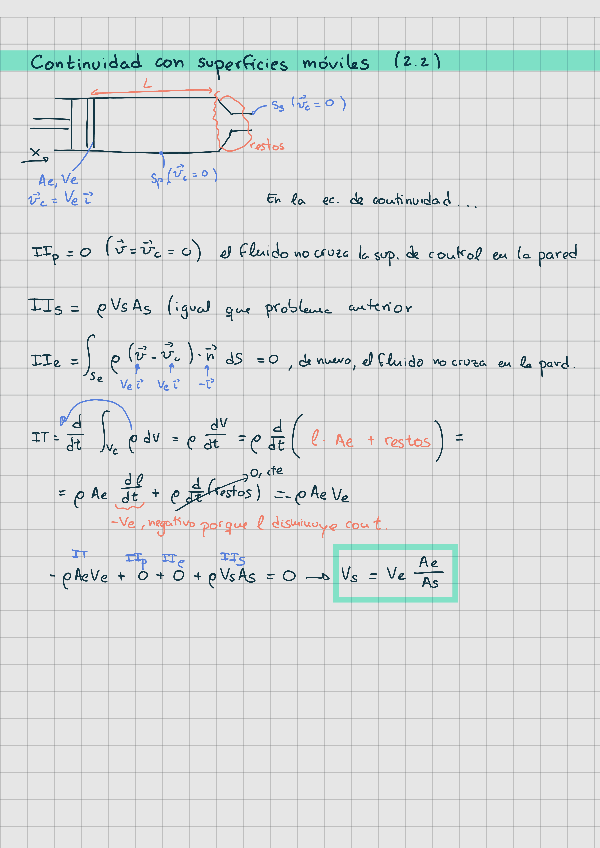 Continuidad con superficies móviles (2.2)
L
S₃ (v⃗c = 0)
restos
x
Ae, Ve
v⃗c = Ve i⃗
Sp (v⃗c = 0)
En la ec. de continuidad...
IIp = 0 (v⃗ = v⃗c = 0) el fluido no cruza la sup. de control en la pared
IIs = ρ Vs As (igual que problema anterior
IIe = ∫Se ρ (v⃗ - v⃗c) · n⃗ dS = 0, de nuevo, el fluido no cruza en la pard.
Ve i⃗ Ve i⃗ -i⃗
IT = d/dt ∫Vc ρ dv = ρ dV/dt = ρ d/dt (l · Ae + restos) =
= ρ Ae dl/dt + ρ d/dt (restos) = - ρ Ae Ve
0, cte
-Ve, negativo porque l disminuye con t.
IT IIp IIe IIs
- ρ Ae Ve + 0 + 0 + ρ Vs As = 0 → Vs = Ve Ae/As